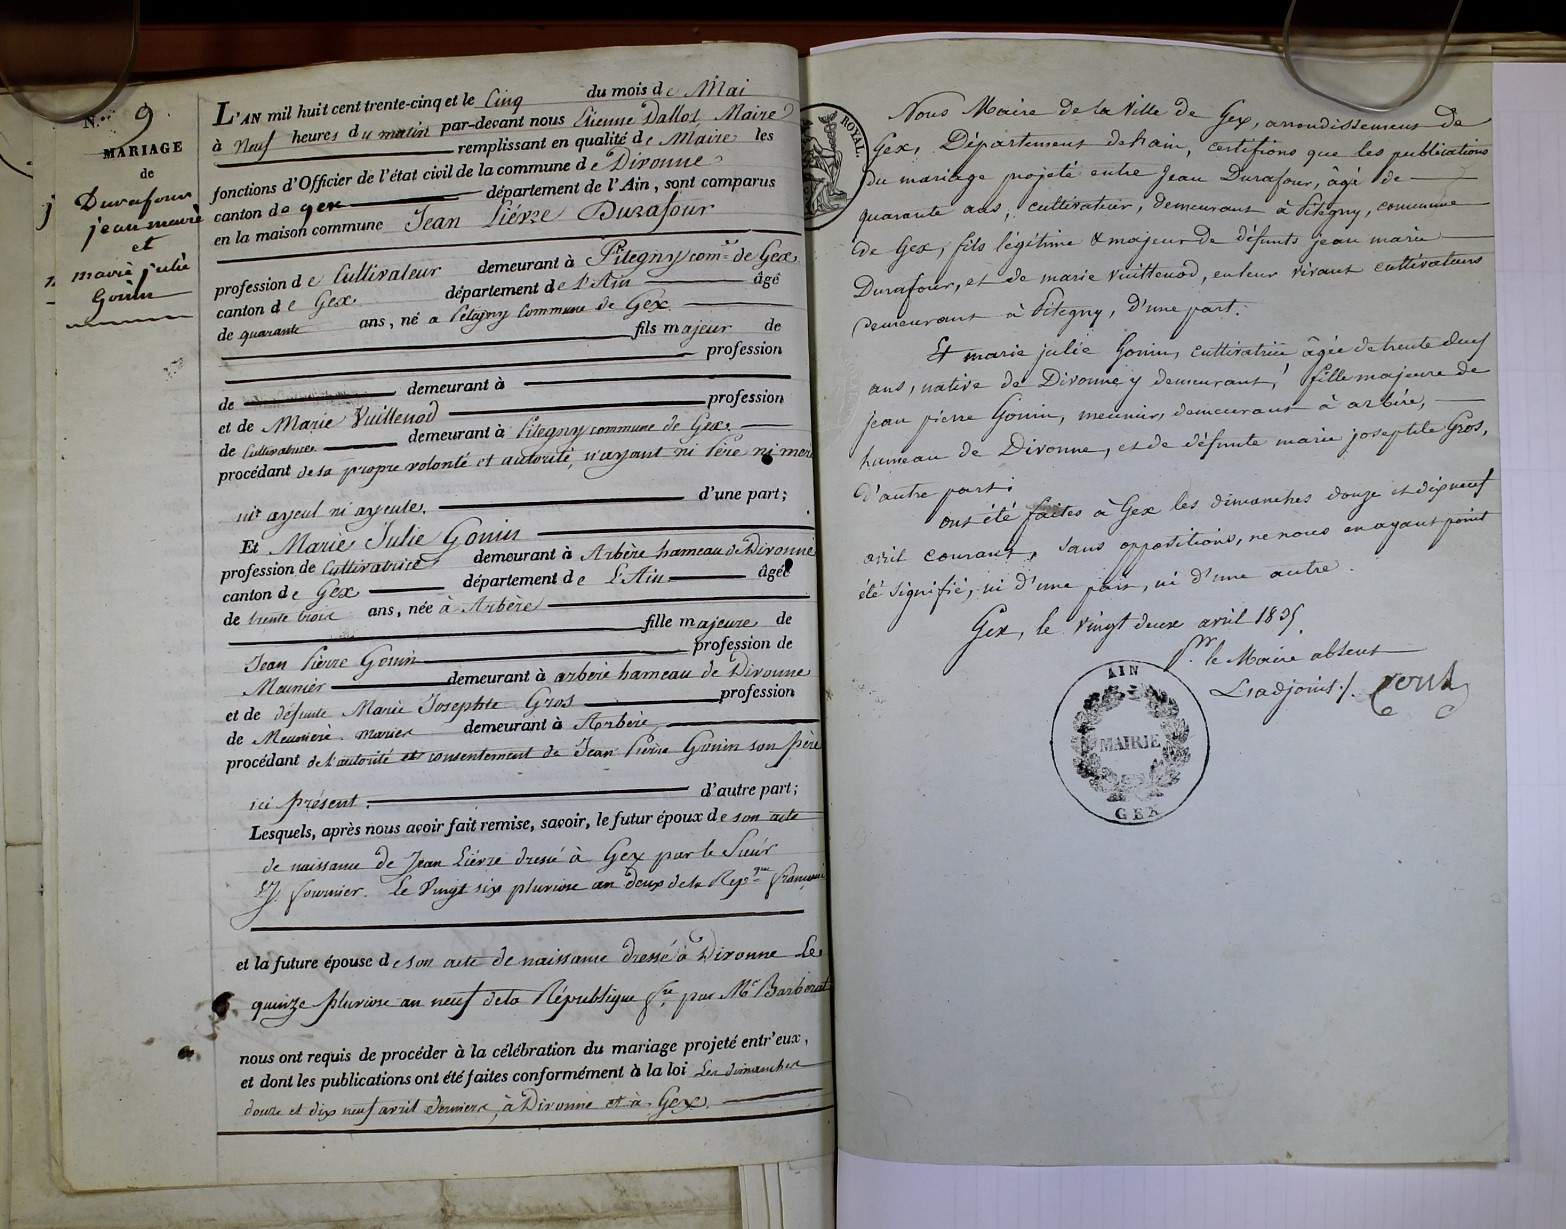 N.º 9
MARIAGE
de
Durafour
jean marie
et
marie julie
Gonin
L'AN mil huit cent trente-cinq et le Cinq du mois de Mai
à Neuf heures du matin par-devant nous Etienne Dallot, Maire
remplissant en qualité de Maire les
fonctions d'Officier de l'état civil de la commune de Divonne
canton de gex département de l'Ain, sont comparus
en la maison commune Jean Piérre Durafour
profession de Cultivateur demeurant à Pitegny com.ne de Gex
canton de Gex département de l'Ain âgé
de quarante ans, né à Pitegny Commune de Gex
fils majeur de
profession
de demeurant à
et de Marie Vuillenod profession
de Cultivatrice demeurant à Pitegny commune de Gex
procédant de sa propre volonté et autorité, n'ayant ni Père ni mere
ni ayeul ni ayeule. d'une part;
Et Marie Julie Gonin
profession de Cultivatrice demeurant à Arbère hameau de Divonne
canton de Gex département de L'Ain âgée
de trente trois ans, née à Arbère
fille majeure de
Jean Pierre Gonin profession de
Meunier demeurant à arbere hameau de Divonne
et de défunte Marie Josephte Gros profession
de Meuniere demeurant à Arbère
procédant de l'autorité et consentement de Jean Pierre Gonin son père
ici présent. d'autre part;
Lesquels, après nous avoir fait remise, savoir, le futur époux de son acte
de naissance de Jean Piérre dressé à Gex par le Sieur
fournier. Le Vingt six pluviose an deux de la Rep.que française
et la future épouse de son acte de naissance dressé à Divonne Le
quinze pluviose an neuf de la République f.se par M.r
nous ont requis de procéder à la célébration du mariage projeté entr'eux,
et dont les publications ont été faites conformément à la loi Les dimanches
douze et dix neuf avril derniers, à Divonne et à Gex.
ROYAL.
Nous Maire de la Ville de Gex, arrondissement de
Gex, Département de l'ain, certifions que les publications
du mariage projeté entre Jean Durafour, âgé de
quarante ans, cultivateur, demeurant à Pitegny, commune
de Gex, fils légitime & majeur de défunts jean marie
Durafour, et de marie vuillenod, en leur vivant cultivateurs
demeurant à Pitegny, d'une part.
Et marie julie Gonin, cultivatrice âgée de trente deux
ans, native de Divonne y demeurant, fille majeure de
jean pierre Gonin, meunier, demeurant à arbère,
hameau de Divonne, et de défunte marie josephte Gros,
d'autre part.
ont été faites à Gex les dimanches douze et dix neuf
avril courant, sans oppositions, ne nous en ayant point
été signifié, ni d'une part, ni d'une autre.
Gex, le vingt deux avril 1835
P.r le Maire absent
L'adjoint
AIN
MAIRIE
GEX